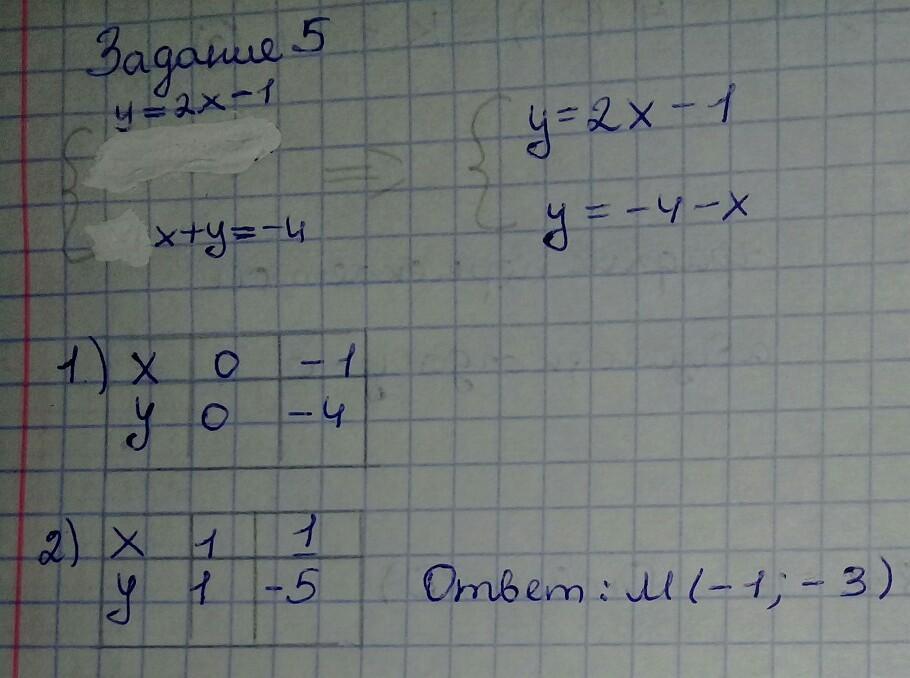 Задание 5
y = 2x - 1
x + y = -4
=>
y = 2x - 1
y = -4 - x
1.) x 0 -1
y 0 -4
2) x 1 1
y 1 -5
Ответ: M (-1; -3)